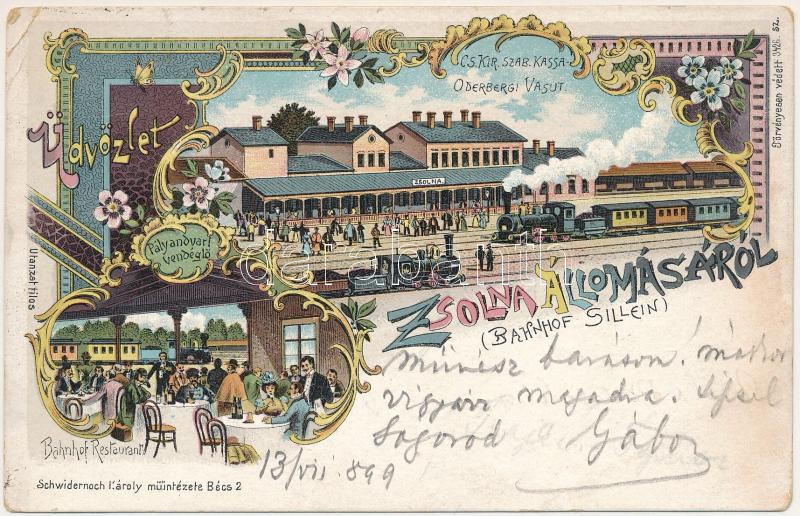 Üdvözlet
Cs. Kir. szab. Kassa-
Oderbergi Vasut.
Törvényesen védett 3426. sz.
ZSOLNA
Pályaudvari
vendéglő
Utánzat tilos
Zsolna Állomásáról
(Bahnhof Sillein)
Művész barátom!
vigyázz magadra.
Sógorod Gábor
13/VII 899
Bahnhof Restaurant
Schwidernoch Károly műintézete Bécs 2
darabanth